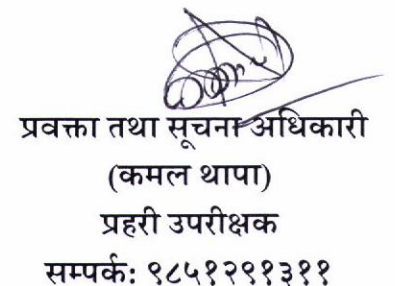 प्रवक्ता तथा सूचना अधिकारी
(कमल थापा)
प्रहरी उपरीक्षक
सम्पर्कः ९८५१२९१३११